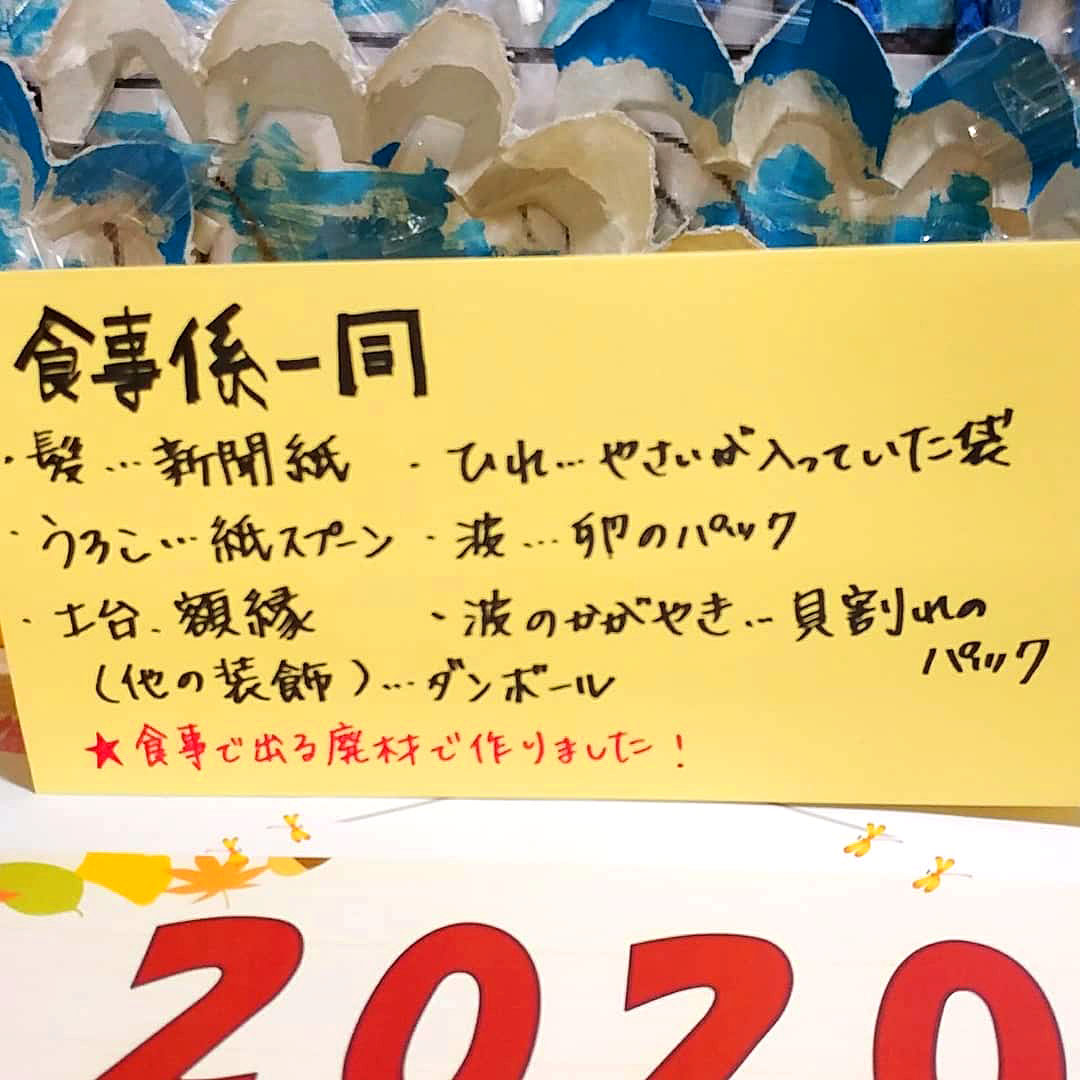 食事係一同
・髪…新聞紙 ・ひれ…やさいが入っていた袋
・うろこ…紙スプーン ・波…卵のパック
・土台、額縁 ・波のかがやき…貝割れの
(他の装飾)…ダンボール パック
★食事で出る廃材で作りました!
2020